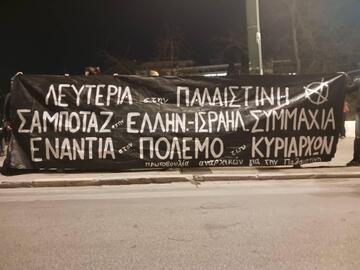 ΛΕΥΤΕΡΙΑ στην ΠΑΛΑΙΣΤΙΝΗ
ΣΑΜΠΟΤΑΖ στην ΕΛΛΗΝ-ΙΣΡΑΗΛ. ΣΥΜΜΑΧΙΑ
ΕΝΑΝΤΙΑ στον ΠΟΛΕΜΟ των ΚΥΡΙΑΡΧΩΝ
πρωτοβουλία αναρχικών για την Παλαιστίνη